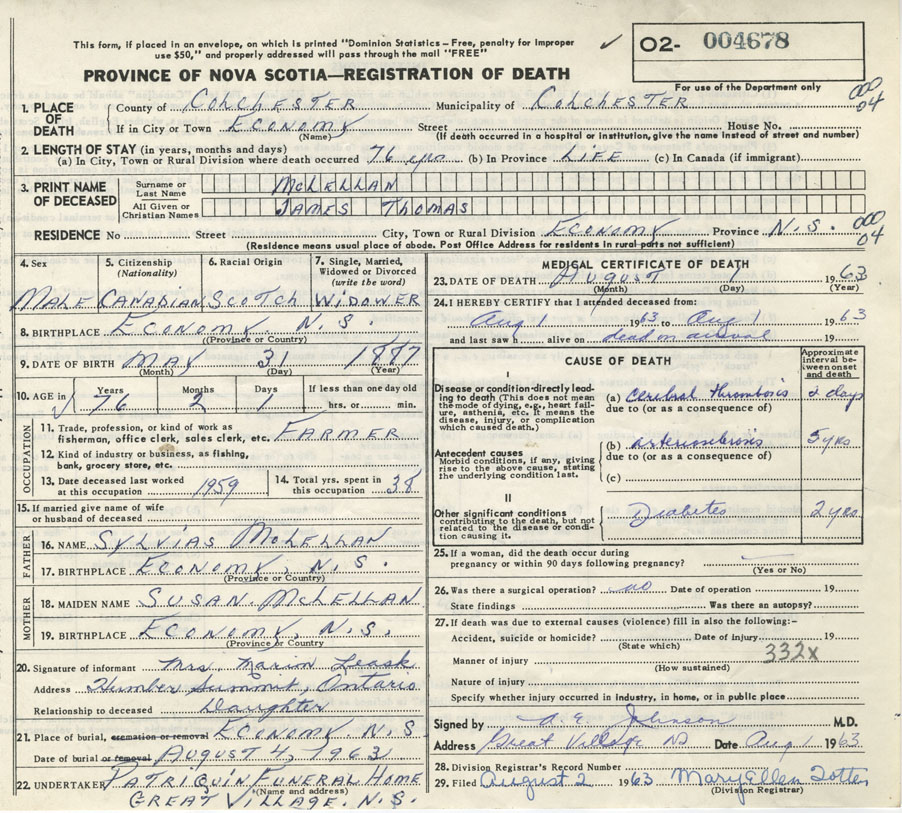 This form, if placed in an envelope, on which is printed "Dominion Statistics – Free, penalty for improper
use $50," and properly addressed will pass through the mail "FREE"
✓
O2- 004678
For use of the Department only
PROVINCE OF NOVA SCOTIA—REGISTRATION OF DEATH
000
04
1. PLACE OF DEATH
County of COLCHESTER Municipality of COLCHESTER
If in City or Town ECONOMY Street House No.
(Name) (If death occurred in a hospital or institution, give the name instead of street and number)
2. LENGTH OF STAY (in years, months and days)
(a) In City, Town or Rural Division where death occurred 76 yrs (b) In Province LIFE (c) In Canada (if immigrant)
3. PRINT NAME OF DECEASED
Surname or Last Name McLELLAN
All Given or Christian Names JAMES THOMAS
RESIDENCE No Street City, Town or Rural Division ECONOMY Province N.S. 000 04
(Residence means usual place of abode. Post Office Address for residents in rural parts not sufficient)
4. Sex 5. Citizenship (Nationality) 6. Racial Origin 7. Single, Married, Widowed or Divorced (write the word)
MALE CANADIAN SCOTCH WIDOWER
8. BIRTHPLACE ECONOMY. N.S.
((Province or Country)
9. DATE OF BIRTH MAY 31 1887
(Month) (Day) (Year)
10. AGE in ✓ Years Months Days If less than one day old
76 2 1 hrs. or min.
OCCUPATION
11. Trade, profession, or kind of work as
fisherman, office clerk, sales clerk, etc. FARMER
12. Kind of industry or business, as fishing,
bank, grocery store, etc.
13. Date deceased last worked
at this occupation 1959
14. Total yrs. spent in
this occupation 38
15. If married give name of wife
or husband of deceased
FATHER
16. NAME SYLVIAS McLELLAN
17. BIRTHPLACE ECONOMY, N.S.
(Province or Country)
MOTHER
18. MAIDEN NAME SUSAN. McLELLAN
19. BIRTHPLACE ECONOMY, N.S.
(Province or Country)
20. Signature of informant Mrs. Leask
Address Humber Summit, Ontario
Relationship to deceased Daughter
21. Place of burial, cremation or removal ECONOMY N.S
Date of burial or removal AUGUST 4, 1963
22. UNDERTAKER PATRIQUIN FUNERAL HOME
(Name and address)
GREAT VILLAGE. N.S.
MEDICAL CERTIFICATE OF DEATH
23. DATE OF DEATH August 1 1963
(Month) (Day) (Year)
24. I HEREBY CERTIFY that I attended deceased from:
Aug 1 1963 to Aug 1 1963
and last saw h alive on dead on arrival 19
CAUSE OF DEATH
Approximate interval between onset and death
I
Disease or condition directly leading
to death (This does not mean
the mode of dying, e.g., heart failure,
asthenia, etc. It means the
disease, injury, or complication
which caused death.)
(a) Cerebral thrombosis 2 days
due to (or as a consequence of)
Antecedent causes
Morbid conditions, if any, giving
rise to the above cause, stating
the underlying condition last.
(b) 5 yrs
due to (or as a consequence of)
(c)
II
Other significant conditions
contributing to the death, but not
related to the disease or condition
causing it.
Diabetes 2 yrs
25. If a woman, did the death occur during
pregnancy or within 90 days following pregnancy?
(Yes or No)
26. Was there a surgical operation? no Date of operation 19
State findings Was there an autopsy?
27. If death was due to external causes (violence) fill in also the following:-
Accident, suicide or homicide? Date of injury 19
(State which)
332x
Manner of injury
(How sustained)
Nature of injury
Specify whether injury occurred in industry, in home, or in public place
Signed by A. E. Johnson M.D.
Address Great Village NS Date Aug 1 1963
28. Division Registrar's Record Number
29. Filed August 2 1963 Mary Ellen Totten
(Division Registrar)